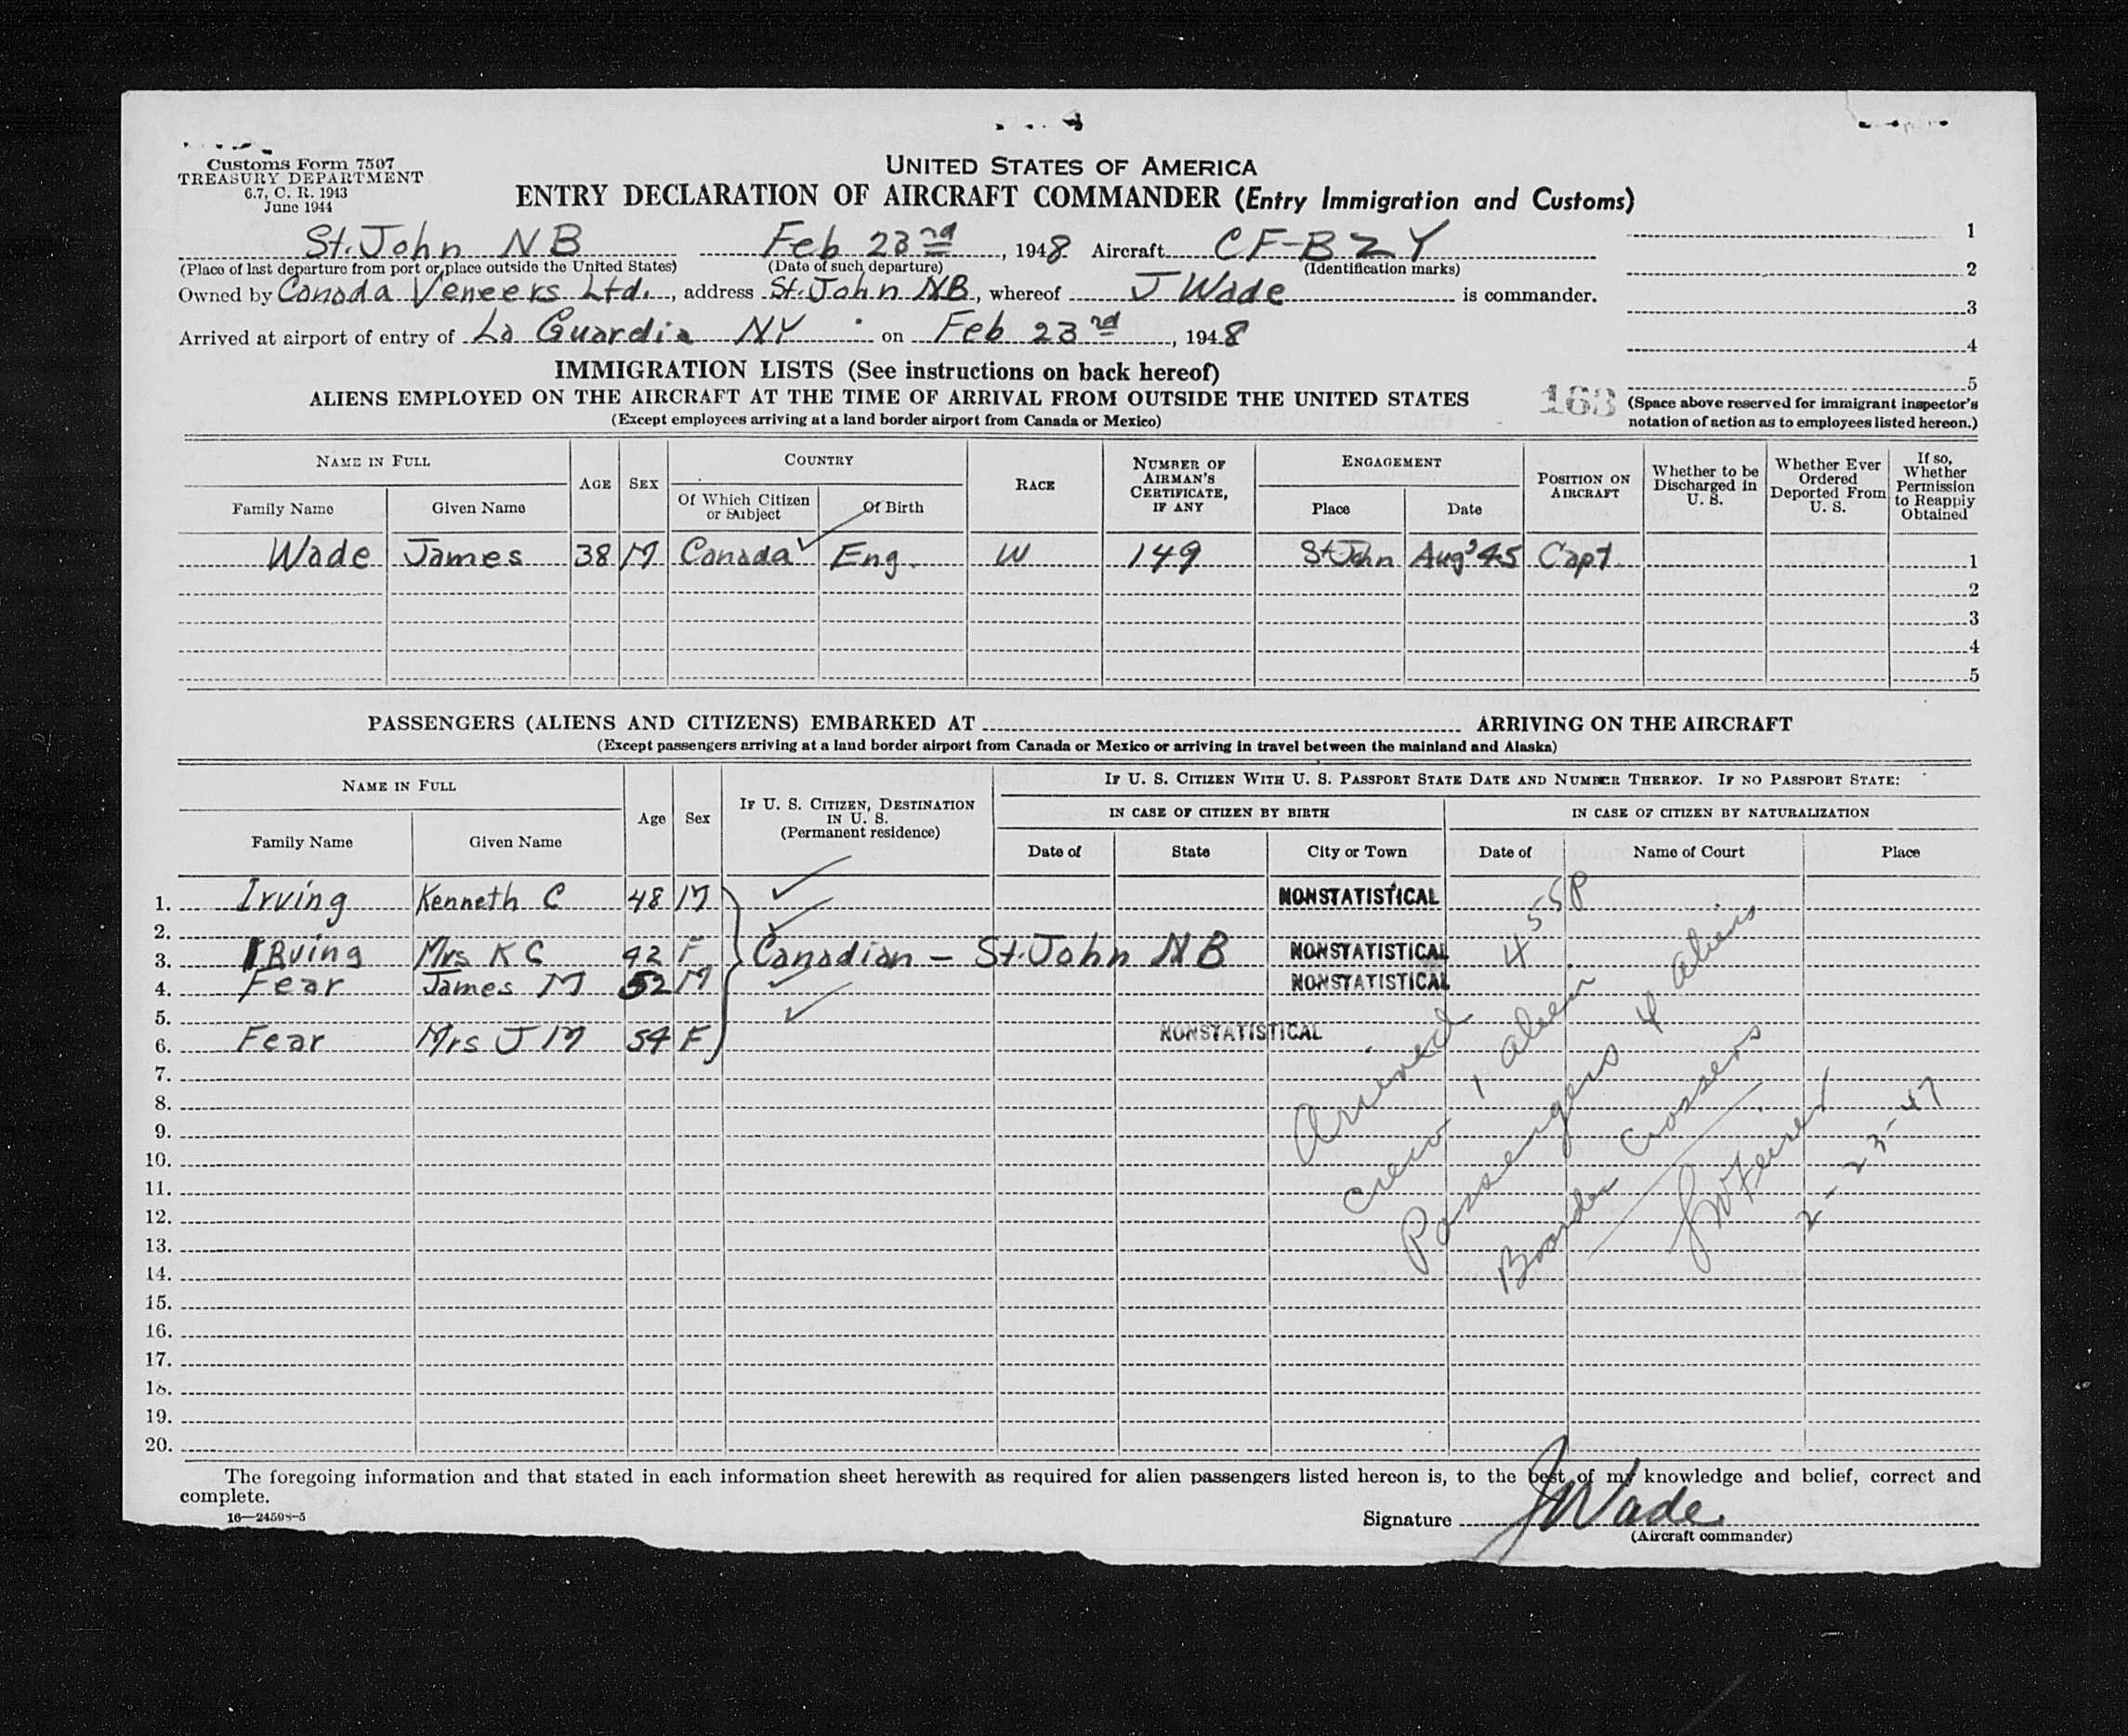 Customs Form 7507
TREASURY DEPARTMENT
6.7, C. R. 1943
June 1944
UNITED STATES OF AMERICA
ENTRY DECLARATION OF AIRCRAFT COMMANDER (Entry Immigration and Customs)
St. John NB Feb 23rd, 1948 Aircraft CF-BZY
(Place of last departure from port or place outside the United States) (Date of such departure) (Identification marks)
Owned by Canada Veneers Ltd., address St. John NB, whereof J Wade is commander.
Arrived at airport of entry of La Guardia NY on Feb 23rd, 1948
1
2
3
4
5
IMMIGRATION LISTS (See instructions on back hereof)
ALIENS EMPLOYED ON THE AIRCRAFT AT THE TIME OF ARRIVAL FROM OUTSIDE THE UNITED STATES
(Except employees arriving at a land border airport from Canada or Mexico)
163
(Space above reserved for immigrant inspector's
notation of action as to employees listed hereon.)
NAME IN FULL AGE SEX COUNTRY RACE NUMBER OF AIRMAN'S CERTIFICATE, IF ANY ENGAGEMENT POSITION ON AIRCRAFT Whether to be Discharged in U. S. Whether Ever Ordered Deported From U. S. If so, Whether Permission to Reapply Obtained
Family Name Given Name Of Which Citizen or Subject Of Birth Place Date
Wade James 38 M Canada Eng. W 149 St John Aug '45 Capt. 1
2
3
4
5
PASSENGERS (ALIENS AND CITIZENS) EMBARKED AT ARRIVING ON THE AIRCRAFT
(Except passengers arriving at a land border airport from Canada or Mexico or arriving in travel between the mainland and Alaska)
NAME IN FULL Age Sex IF U. S. CITIZEN, DESTINATION IN U. S. (Permanent residence) IF U. S. CITIZEN WITH U. S. PASSPORT STATE DATE AND NUMBER THEREOF. IF NO PASSPORT STATE:
IN CASE OF CITIZEN BY BIRTH IN CASE OF CITIZEN BY NATURALIZATION
Family Name Given Name Date of State City or Town Date of Name of Court Place
1. Irving Kenneth C 48 M NONSTATISTICAL
2.
3. IRving Mrs K C 42 F Canadian - St. John NB NONSTATISTICAL
4. Fear James M 52 M NONSTATISTICAL
5.
6. Fear Mrs J M 54 F NONSTATISTICAL
7.
8.
9.
10.
11.
12.
13.
14.
15.
16.
17.
18.
19.
20.
Arrived 455P
crew 1 alien
Passengers 4 aliens
Boarder Crossers
2-23-47
The foregoing information and that stated in each information sheet herewith as required for alien passengers listed hereon is, to the best of my knowledge and belief, correct and
complete.
16—24598-5
Signature JWade
(Aircraft commander)